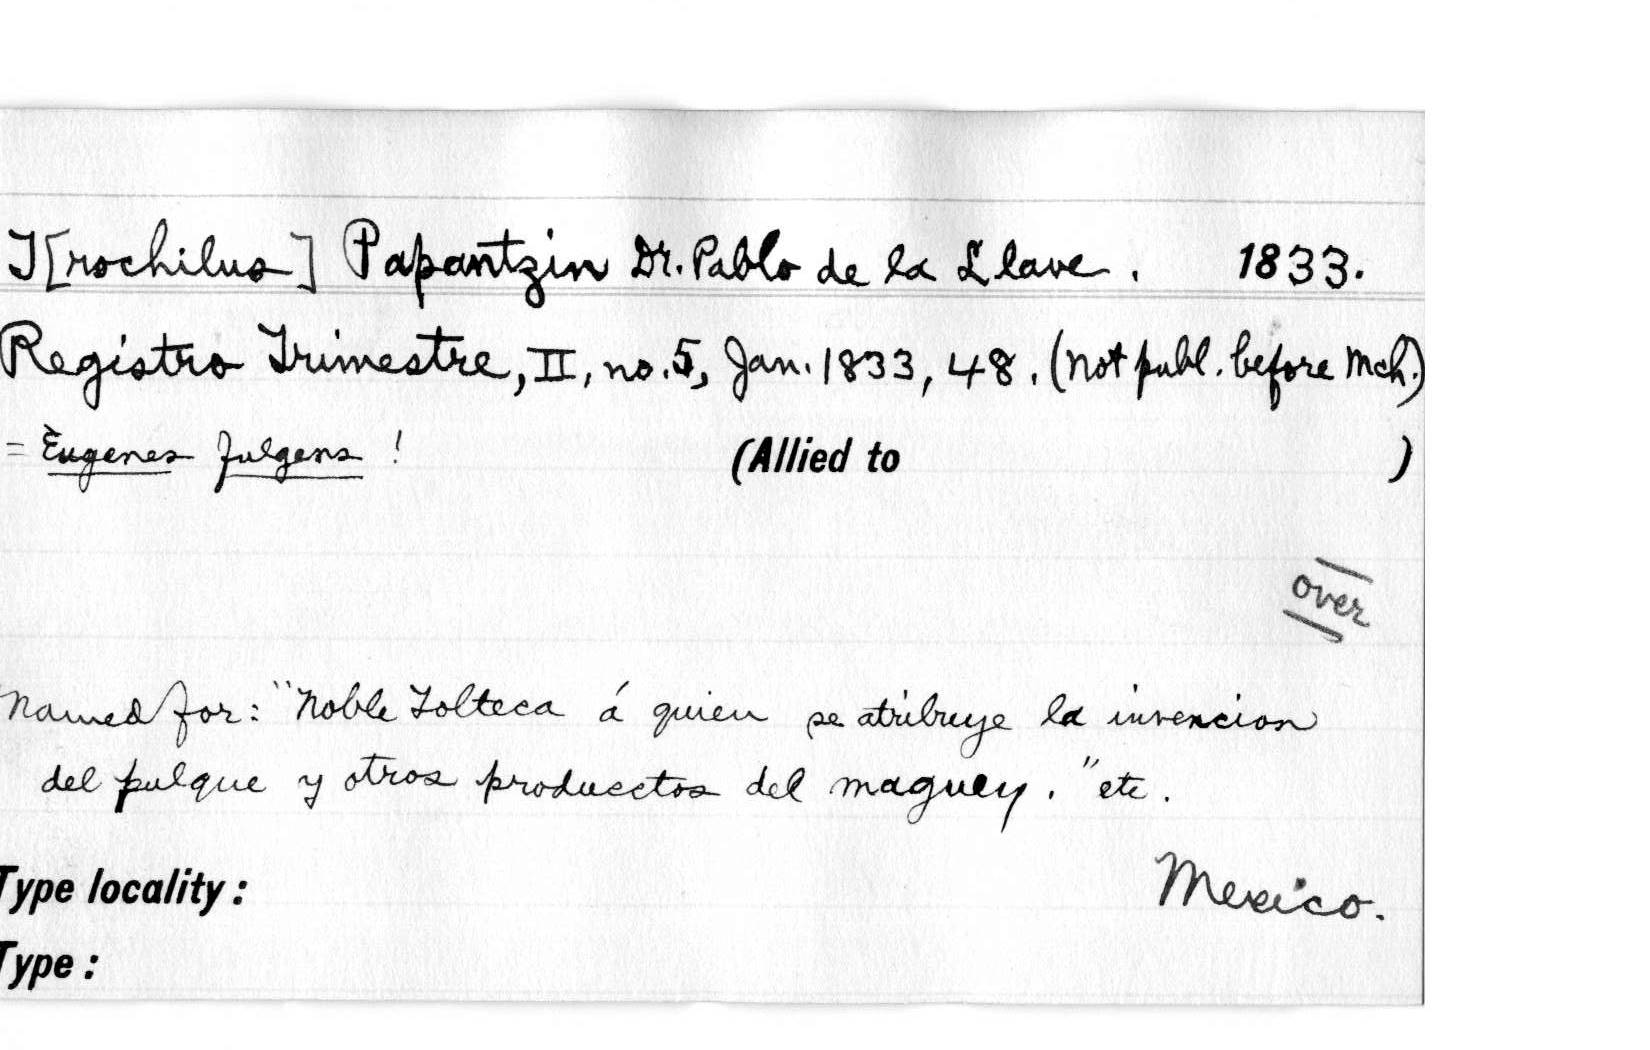 T[rochilus] Papantzin Dr. Pablo de la Llave. 1833.
Registro Trimestre, II, no. 5, Jan. 1833, 48. (not publ. before Mch.)
= Eugenes fulgens ! (Allied to )
over
Named for: "Noble Tolteca á quien se atribuye la invencion
del pulque y otros producctos del maguey." etc.
Mexico.
Type locality:
Type: